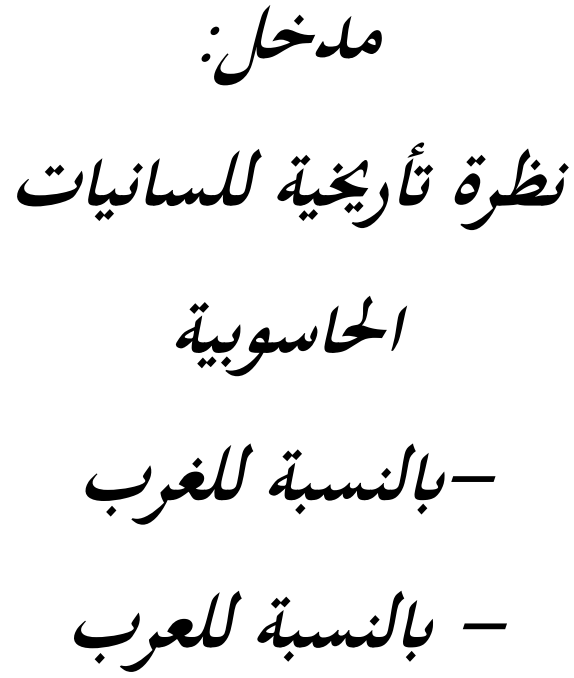 مدخل:
نظرة تأريخية للسانيات
الحاسوبية
–بالنسبة للغرب
– بالنسبة للعرب